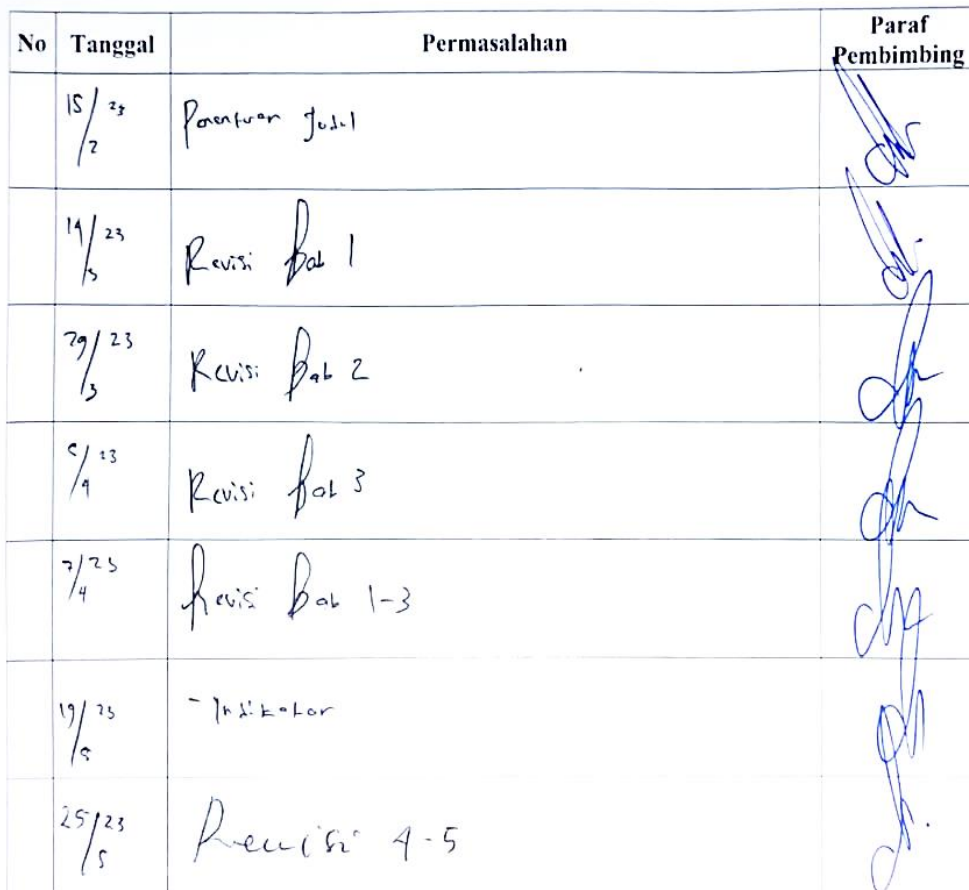 No Tanggal Permasalahan Paraf Pembimbing
15/2 23 Penentuan Judul
14/3 23 Revisi Bab 1
29/3 23 Revisi Bab 2
/4 23 Revisi Bab 3
7/4 23 Revisi Bab 1-3
19/5 23 - Indikator
25/5 23 Revisi 4-5